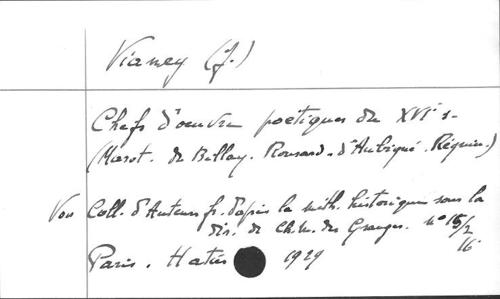 Vianey (J.)
Chefs d'oeuvre poétiques du XVIe s.
(Marot. du Bellay. Ronsard. d'Aubigné. Régnier.)
Voir Coll. d'Auteurs fr. d'après la méth. historique sous la
dir. de Ch. M. des Granges. n° 15/2
16
Paris. Hatier 1929